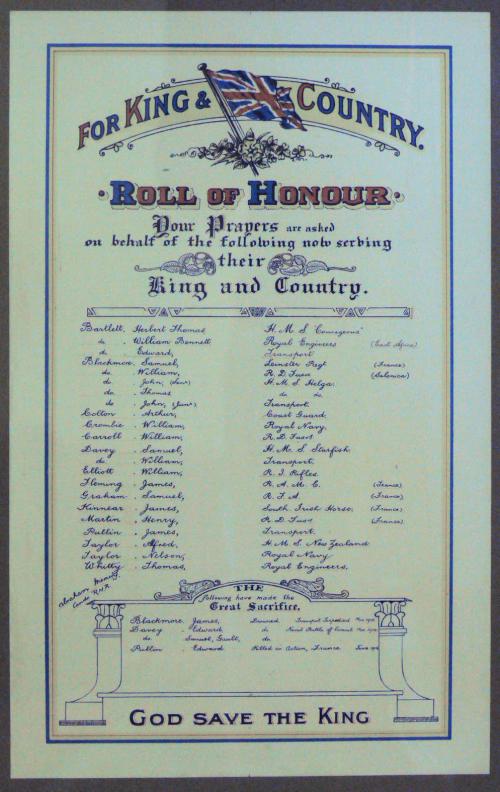 FOR KING & COUNTRY.
ROLL OF HONOUR
Your Prayers are asked
on behalf of the following now serving
their
King and Country.
Bartlett. Herbert Thomas H.M.S "Courageous"
do. . William Bennett Royal Engineers (East Africa)
do. Edward, Transport
Blackmore. Samuel, Leinster Regt (France)
do. William, R.D. Fusrs (Salonica)
do. John, (Senr) H.M.S Helga.
do. Thomas do do.
do. John, (Junr) Transport.
Colton. Arthur, Coast Guard.
Crombie. William, Royal Navy.
Carroll. William, R.D. Fusrs
Davey. Samuel, H.M.S. Starfish.
do. William, Transport.
Elliott. William, R.I. Rifles.
Fleming. James, R.A.M.C. (France)
Graham. Samuel, R.F.A. (France)
Kinnear. James, South Irish Horse. (France)
Martin. Henry, R.D. Fusrs (France)
Pullin. James, Transport.
Taylor. Alfred, H.M.S. New Zealand
Taylor. Nelson, Royal Navy
Whitty. Thomas, Royal Engineers.
Abraham R.N.R.
THE
following have made the
Great Sacrifice.
Blackmore. James, Drowned Transport Torpedoed
Davey. Edward, do Naval Battle of Coronel
do. Samuel, do.
Pullin. Edward Killed in Action, France
GOD SAVE THE KING